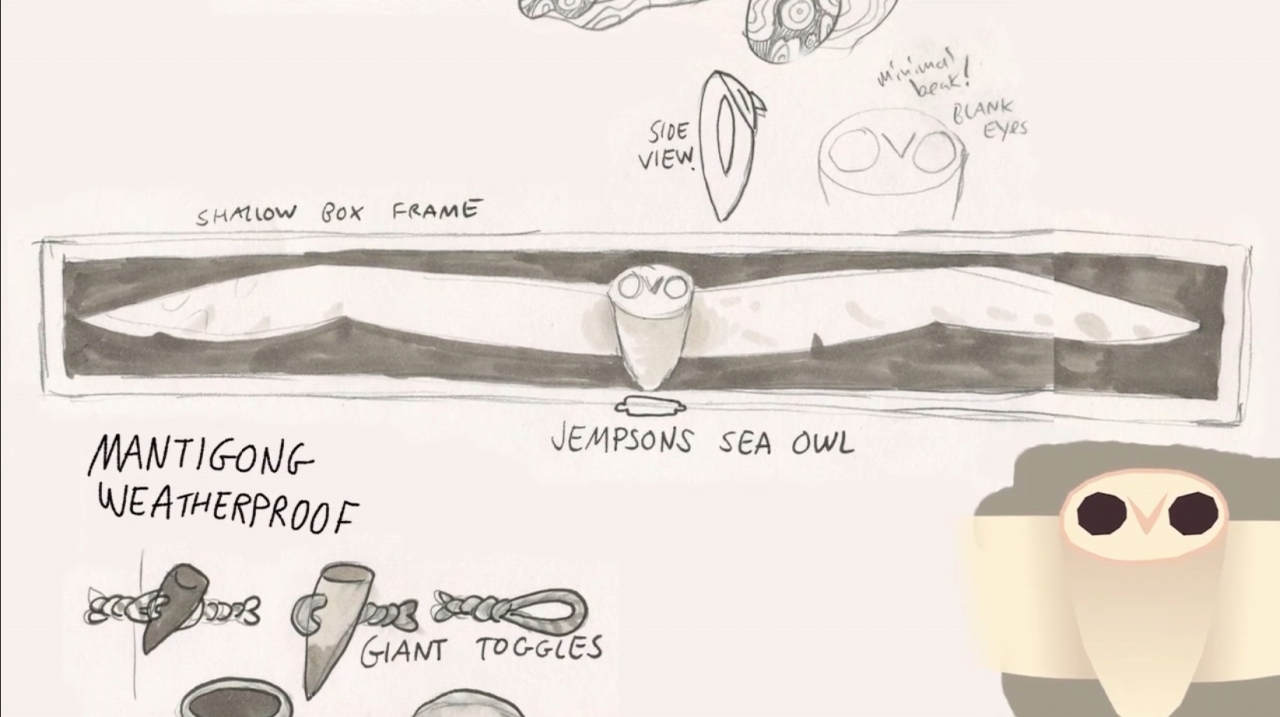 minimal
beak!
BLANK
EYes
SIDE
VIEW.
SHALLOW BOX FRAME
JEMPSONS SEA OWL
MANTIGONG
WEATHERPROOF
GIANT TOGGLES